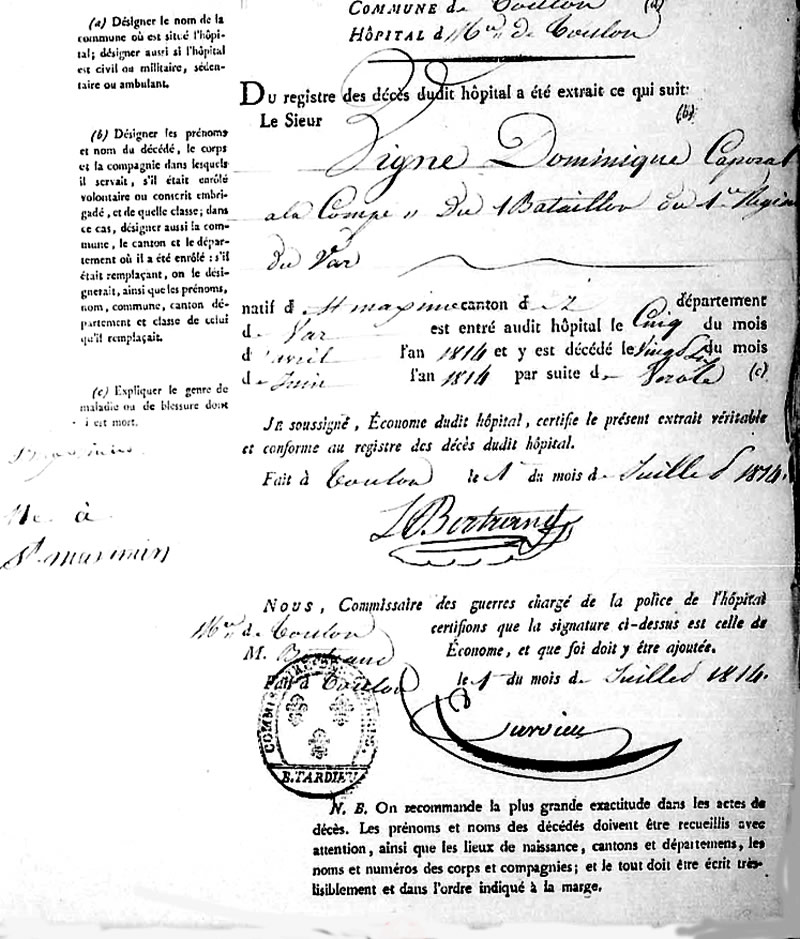 (a) Désigner le nom de la
commune où est situé l'hôpi-
tal; désigner aussi si l'hôpital
est civil ou militaire, séden-
taire ou ambulant.
(b) Désigner les prénoms
et nom du décédé, le corps
et la compagnie dans lesquels
il servait, s'il était enrôlé
volontaire ou conscrit embri-
gadé, et de quelle classe; dans
ce cas, désigner aussi la com-
mune, le canton et le dépar-
tement où il a été enrôlé : s'il
était remplaçant, on le dési-
gnerait, ainsi que les prénoms,
nom, commune, canton dé-
partement et classe de celui
qu'il remplaçait.
(c) Expliquer le genre de
maladie ou de blessure dont
il est mort.
Né à
St maximin
COMMUNE de Toulon (a)
HÔPITAL d Mre de Toulon
DU registre des décès dudit hôpital a été extrait ce qui suit:
Le Sieur (b)
Signe Dominique Caporal
a la Compe " Du 1 Bataillon du 1er Regim
du Var
natif d St maxime canton d département
d Var est entré audit hôpital le Cinq du mois
d'avril l'an 1814 et y est décédé le Vingt Six du mois
de Juin l'an 1814 par suite de Verole (c)
JE soussigné, Économe dudit hôpital, certifie le présent extrait véritable
et conforme au registre des décès dudit hôpital.
Fait à Toulon le 1 du mois de Juillet 1814.
Bertrand
NOUS, Commissaire des guerres chargé de la police de l'hôpital
Mre de Toulon certifions que la signature ci-dessus est celle de
M. Bertrand Économe, et que foi doit y être ajoutée.
Fait à Toulon le 1 du mois de Juillet 1814.
B. TARDIEU
N. B. On recommande la plus grande exactitude dans les actes de
décès. Les prénoms et noms des décédés doivent être recueillis avec
attention, ainsi que les lieux de naissance, cantons et départemens, les
noms et numéros des corps et compagnies; et le tout doit être écrit très-
lisiblement et dans l'ordre indiqué à la marge.